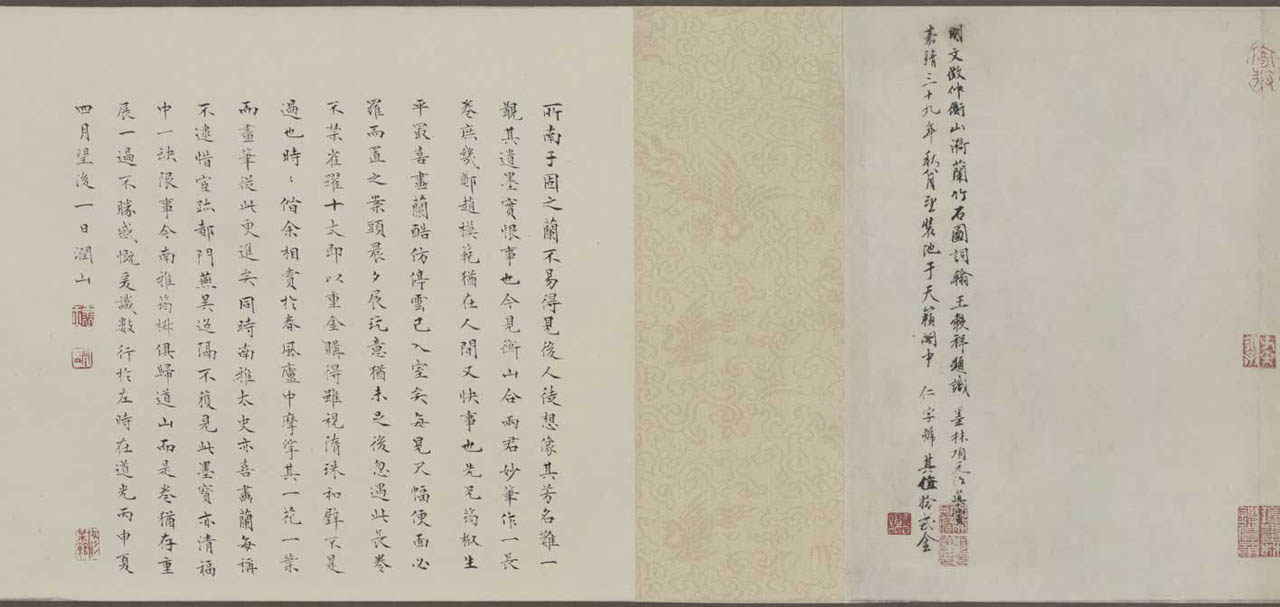 明文徵仲衡山漪蘭竹石圖詞翰王穀祥題識 墨林項元汴真賞
嘉靖三十九年秋八月望裝池于天籟閣中 仁字號 其值拾貳金
所南子固之蘭不易得見後人徒想像其芳名難一
觀其遺墨實恨事也今見衡山合兩君妙筆作一長
卷庶幾鄭趙模範猶在人間又快事也先兄筠椒生
平最喜畫蘭酷仿停雲已入室矣每見尺幅便面必
羅而置之案頭晨夕展玩意猶未足後忽遇此長卷
不禁雀躍十丈即以重金購得雖視隋珠和璧不是
過也時〻偕余相賞於春風廬中摩挲其一花一葉
而畫筆從此更進矣同時南雅太史亦善畫蘭每稱
不逮惜宦跡都門燕吳迢隔不獲見此墨寶亦清福
中一缺限事今南雅筠椒俱歸道山而是卷猶存重
展一過不勝感慨爰識數行於左時在道光丙申夏
四月望後一日潤山